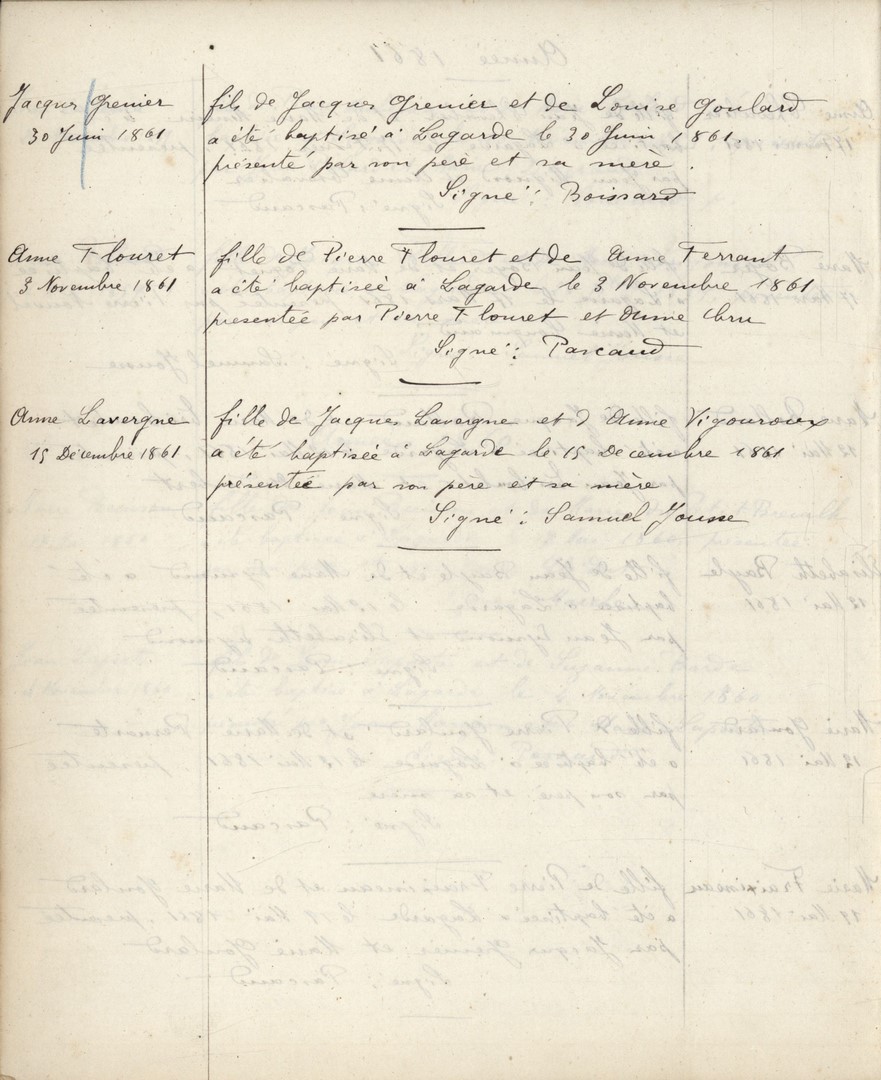 Jacques Grenier
30 Juin 1861
fils de Jacques Grenier et de Louise Goulard
a été baptisé à Lagarde le 30 Juin 1861.
présenté par son père et sa mère.
Signé : Boissard
Anne Flouret
3 Novembre 1861
fille de Pierre Flouret et de Anne Ferrant
a été baptisée à Lagarde le 3 Novembre 1861
presentée par Pierre Flouret et Anne Bru
Signé : Pascaud
Anne Lavergne
15 Décembre 1861
fille de Jacques Lavergne et d'Anne Vigouroux
a été baptisée à Lagarde le 15 Decembre 1861
présentée par son pere et sa mère
Signé : Samuel Jousse